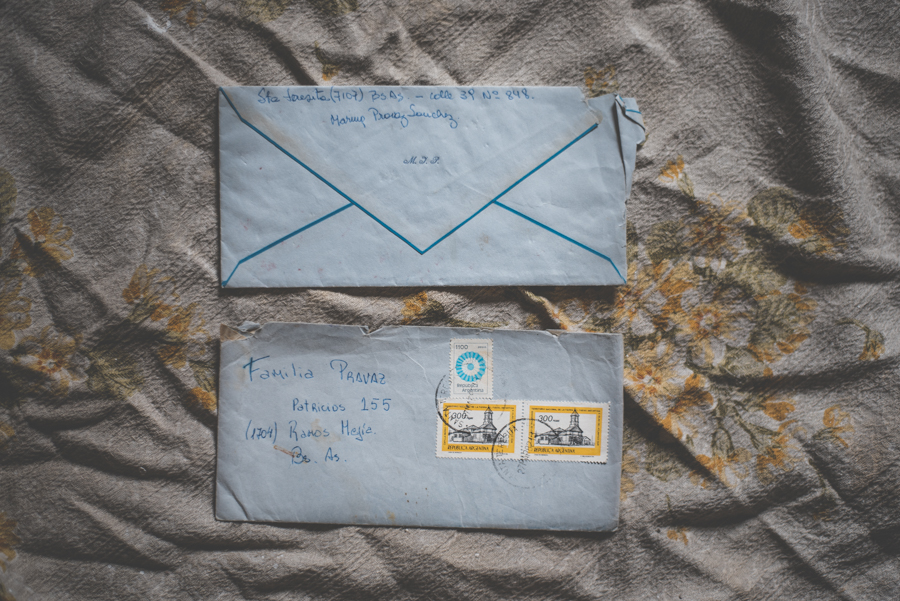 Sta Teresita (7107) Bs As. - calle 39 Nº 898.
Provaz Sanchez
M.T.P.
Familia PROVAZ
Patricios 155
(1704) Ramos Mejía.
Bs. As.
1100
República
Argentina
300
REPUBLICA ARGENTINA
300
REPUBLICA ARGENTINA